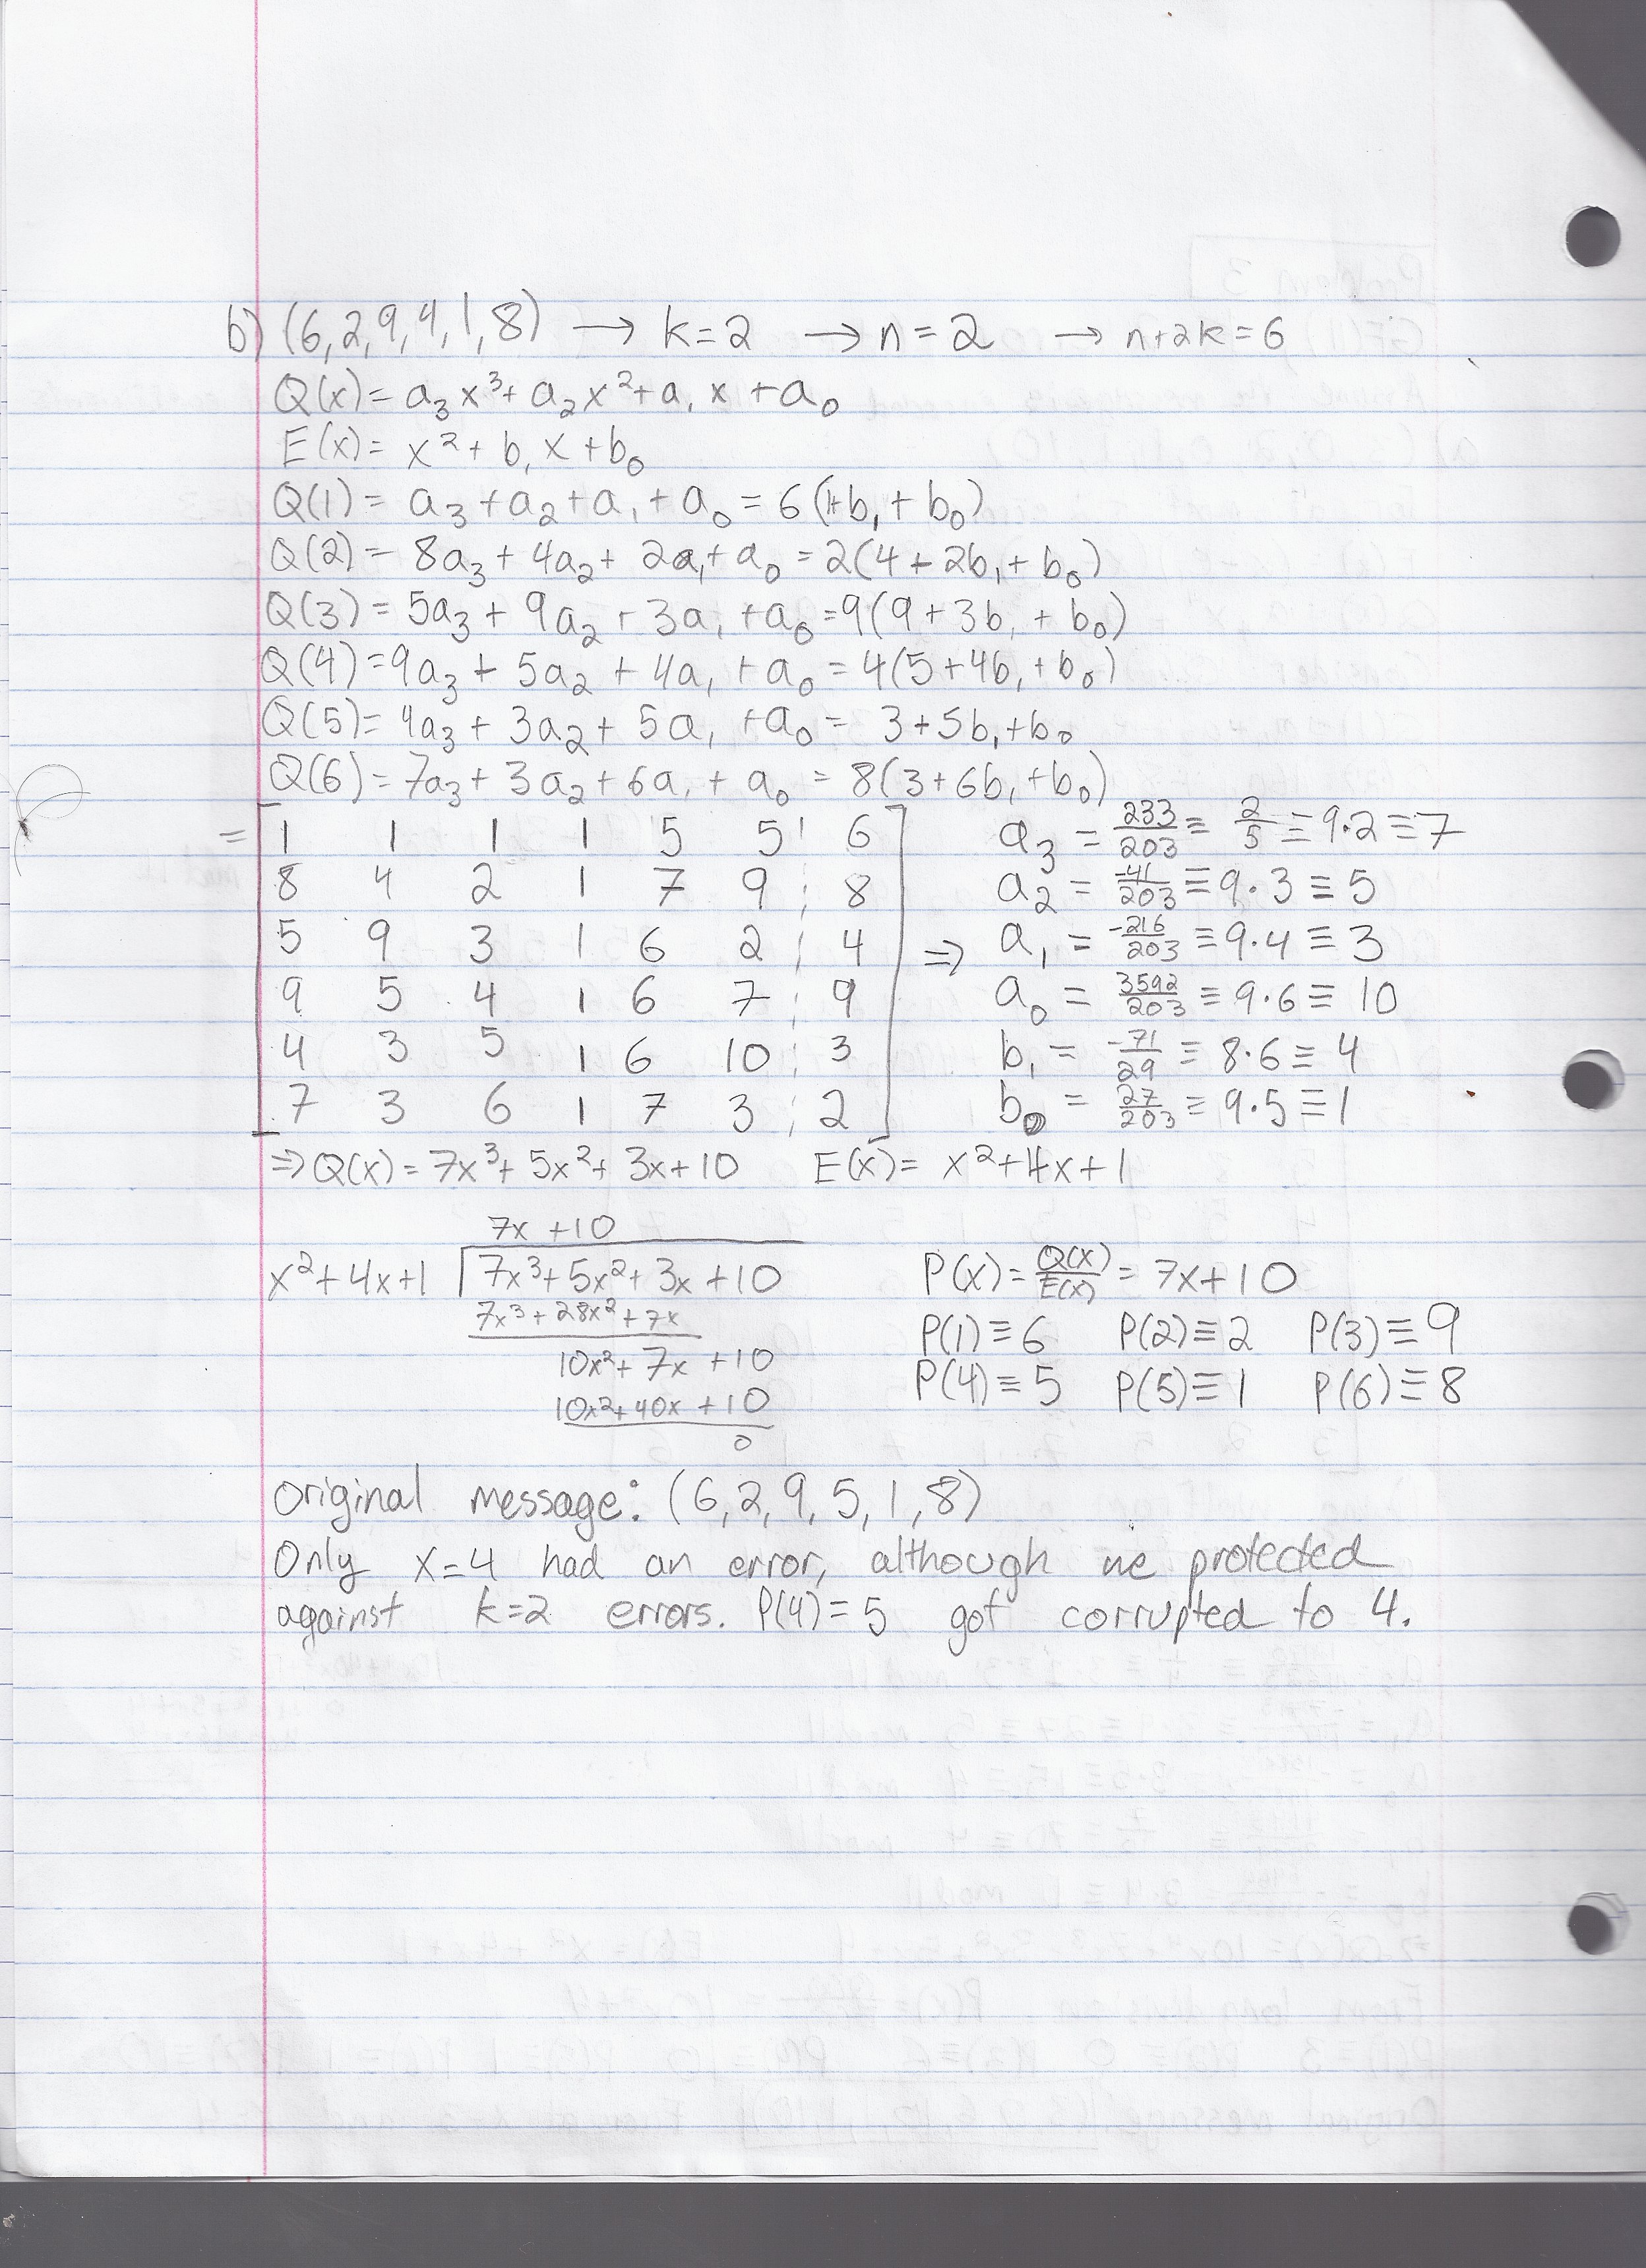 b) (6,2,9,4,1,8) → k=2 → n=2 → n+2k=6
Q(x)= a₃x³+ a₂x²+a₁x +a₀
E(x)= x²+ b₁x +b₀
Q(1)= a₃+a₂+a₁+a₀=6(1+b₁+b₀)
Q(2)= 8a₃+4a₂+ 2a₁+a₀=2(4+2b₁+b₀)
Q(3)= 5a₃+ 9a₂+3a₁+a₀=9(9+3b₁+b₀)
Q(4)=9a₃+ 5a₂+4a₁+a₀=4(5+4b₁+b₀)
Q(5)= 4a₃+ 3a₂+ 5a₁+a₀= 3+5b₁+b₀
Q(6)=7a₃+3a₂+6a₁+ a₀ = 8(3+6b₁+b₀)
= [1 1 1 1 5 5 ¦ 6
8 4 2 1 7 9 ¦ 8
5 9 3 1 6 2 ¦ 4
9 5 4 1 6 7 ¦ 9
4 3 5 1 6 10 ¦ 3
7 3 6 1 7 3 ¦ 2]
⇒ a₃ = 233/203 ≡ 2/5 ≡ 9·2 ≡7
a₂ = -41/203 ≡ 9·3 ≡ 5
a₁ = -216/203 ≡ 9·4 ≡ 3
a₀ = 3592/203 ≡ 9·6 ≡ 10
b₁ = -71/29 ≡ 8·6 ≡ 4
b₀ = 27/203 ≡ 9·5 ≡1
⇒ Q(x) = 7x³+ 5x²+ 3x+10 E(x)= x²+4x+1
7x +10
x²+4x+1 7x³+5x²+3x +10
7x³+28x²+7x
10x²+ 7x +10
10x²+40x +10
0
P(x)= Q(x)/E(x) = 7x+10
P(1)≡6 P(2)≡2 P(3)≡9
P(4)≡5 P(5)≡1 P(6)≡8
Original message: (6,2,9,5,1,8)
Only x=4 had an error, although we protected
against k=2 errors. P(4)=5 got corrupted to 4.